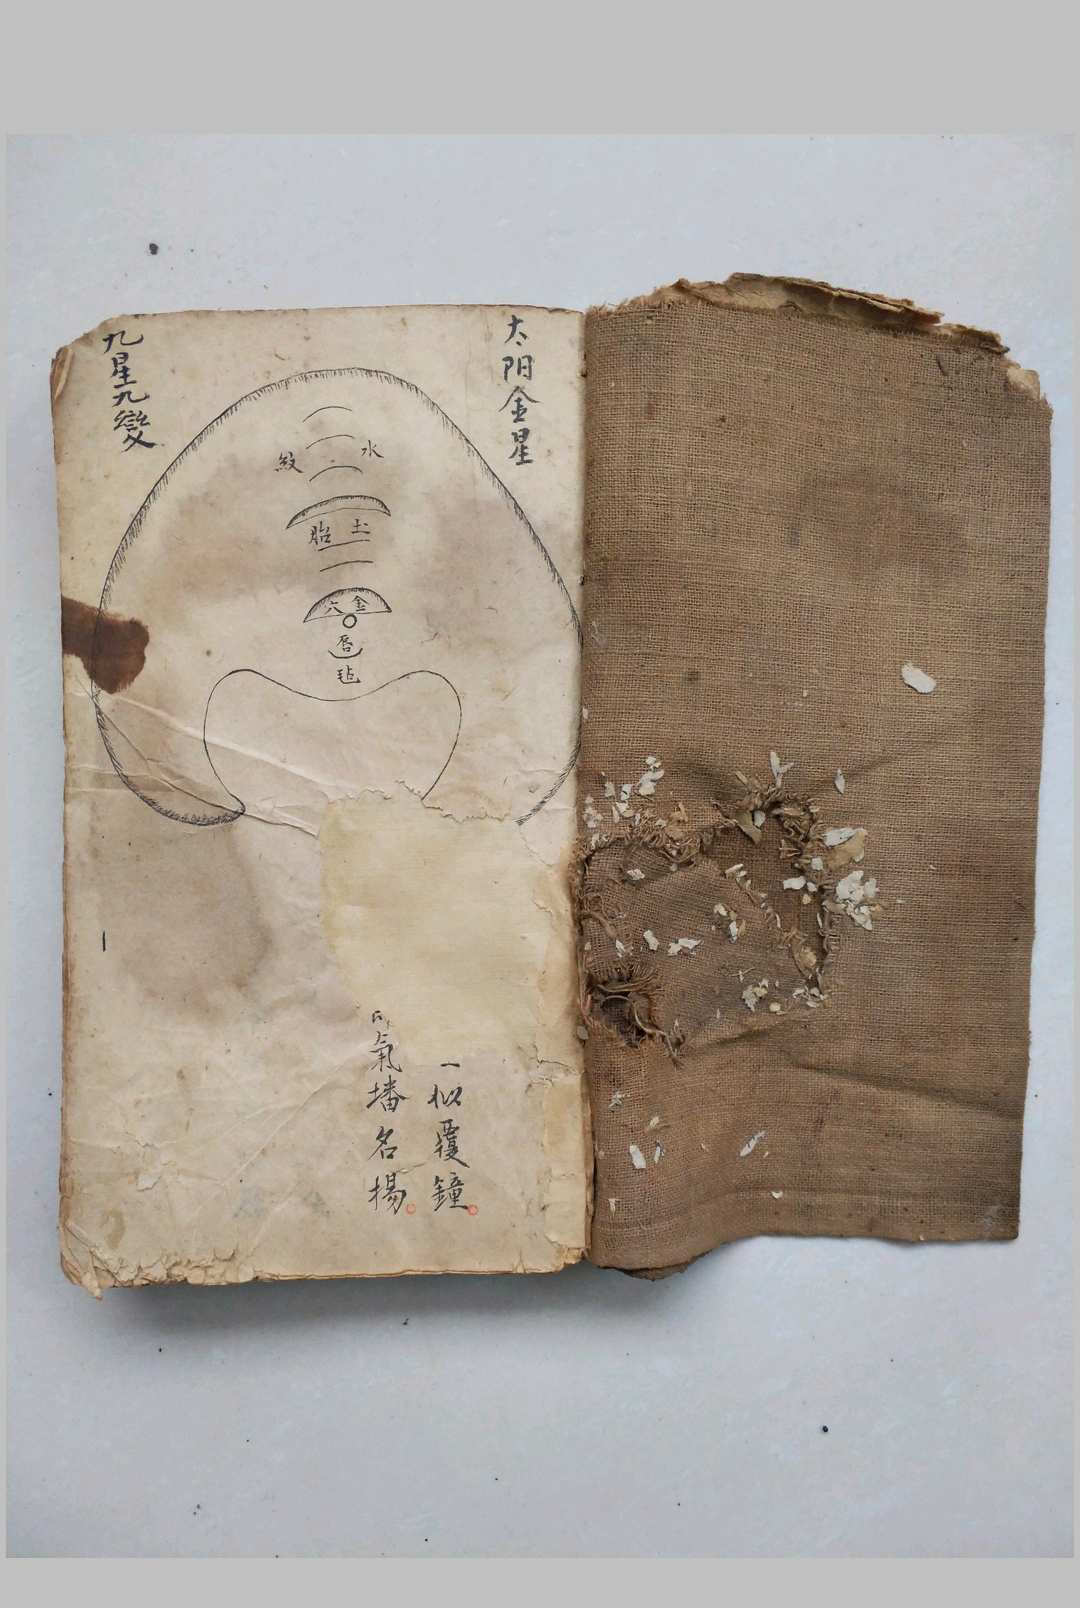 太阳金星
九星九變
水紋
土胎
金六
唇
毡
一似覆鐘
氣墦名揚